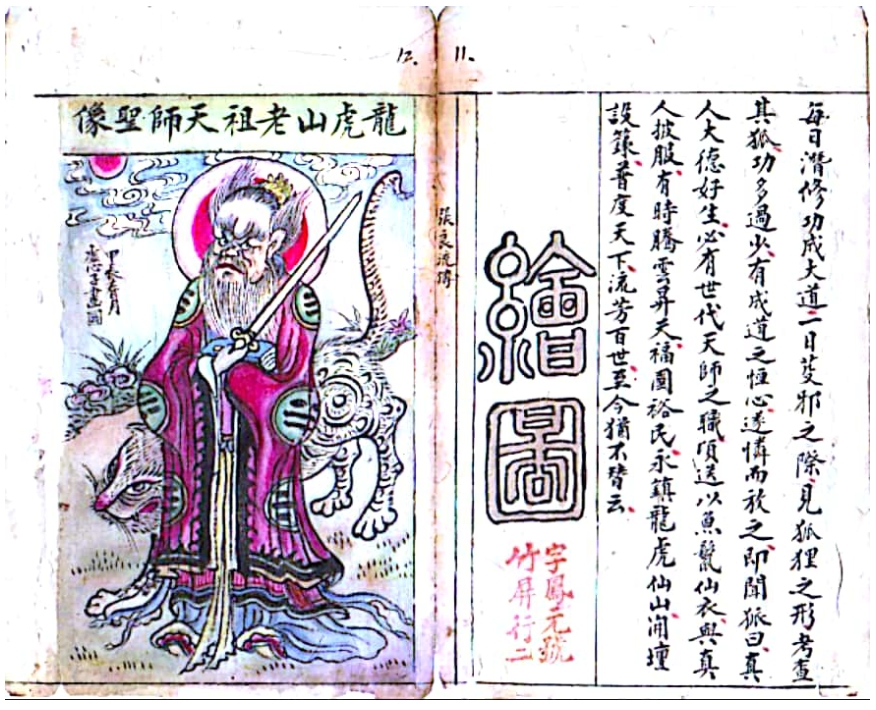 11.
每日潛修功成大道一日芟邪之際見狐狸之形考查
其狐功多過少有成道之恒心遂憐而放之即聞狐曰真
人大德好生必有世代天師之職頃送以魚鬣仙衣與真
人披服有時騰雲昇天福國裕民永鎮龍虎仙山開壇
設籙普度天下流芳百世至今猶不替云
繪圖
字鳳元號
竹屏行二
張良流傳
12.
龍虎山老祖天師聖像
甲辰月
畫圖